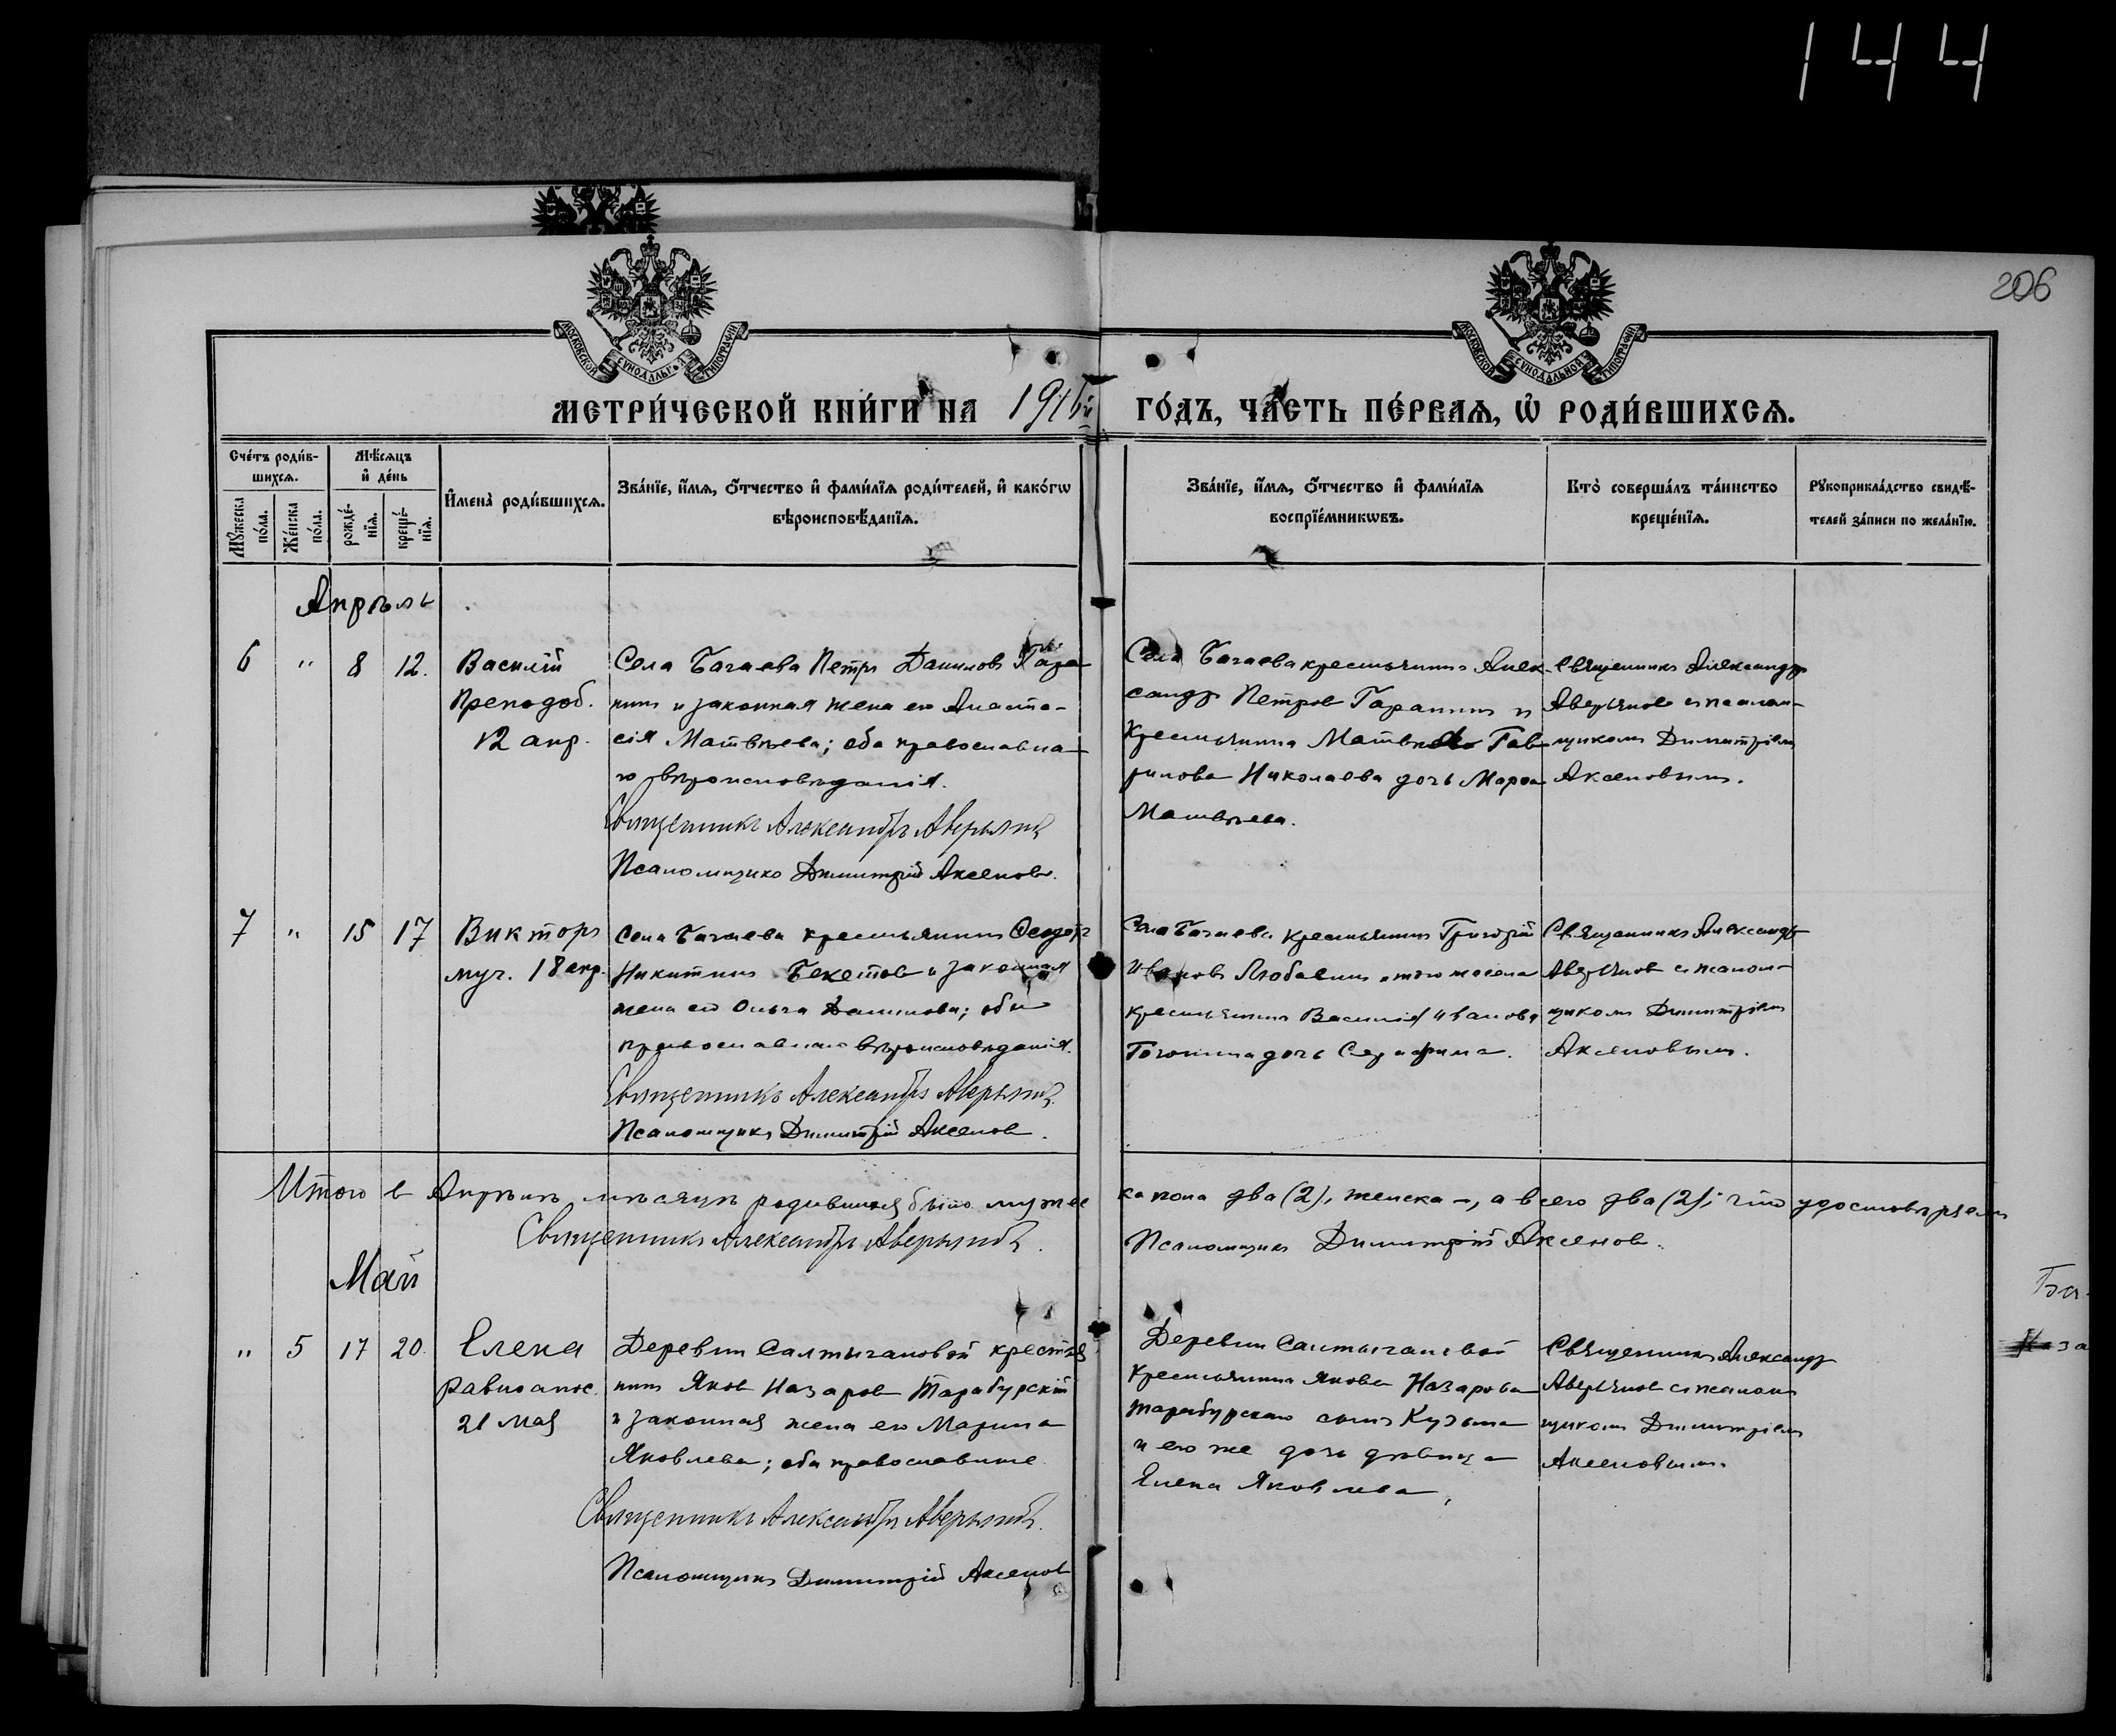 144
206
МОСКОВСКОЙ СѴНОДАЛЬНОЙ ТИПОГРАФІИ
МОСКОВСКОЙ СѴНОДАЛЬНОЙ ТИПОГРАФІИ
МЕТРИ́ЧЕСКОЙ КНИ́ГИ НА 1916й ГО́ДЪ, ЧА́СТЬ ПЕ́РВАѦ, Ѽ РОДИ́ВШИХСѦ.
Сче́тъ роди́в-
шихсѧ.
Мꙋ́жеска по́ла.
Же́нска по́ла.
Мѣ́сѧцъ
и҆ де́нь
рожде́-
нїѧ.
креще́-
нїѧ.
И҆мена̀ роди́вшихсѧ.
Зва́нїе, и҆́мѧ, ѻ҆́тчество и҆ фами́лїѧ роди́телей, и҆ како́гѡ
вѣроисповѣ́данїѧ.
Зва́нїе, и҆́мѧ, ѻ҆́тчество и҆ фами́лїѧ
воспрїе́мникѡвъ.
Кто̀ соверша́лъ та́инство
креще́нїѧ.
Рꙋкоприкла́дство свидѣ́-
телей за́писи по жела́нїю.
Апрѣль
6 " 8 12.
Василій
Преподоб.
12 апр.
Села Бачаева Петръ Даниловъ Гара-
нинъ и законная жена его Анаста-
сія Матвѣева; оба православна-
го вѣроисповѣданія.
Священникъ Александръ Аверьяновъ
Псаломщикъ Димитрій Аксеновъ.
Села Бачаева крестьянинъ Алек-
сандръ Петровъ Гаранинъ и
Крестьянина Матвѣя Гав-
рилова Николаева дочь Марѳа
Матвѣева.
Священникъ Александръ
Аверьяновъ съ псалом-
щикомъ Димитріемъ
Аксеновымъ.
7 " 15 17
Викторъ
муч. 18 апр.
Села Бачаева крестьянинъ Ѳеодоръ
Никитинъ Бекетовъ и законная
жена его Ольга Данилова; оба
православнаго вѣроисповѣданія.
Священникъ Александръ Аверьяновъ.
Псаломщикъ Димитрій Аксеновъ.
Села Бачаева крестьянинъ Григорій
Ивановъ Любаевъ и того же села
крестьянина Василія Иванова
дочь Серафима.
Священникъ Александръ
Аверьяновъ съ псалом-
щикомъ Димитріемъ
Аксеновымъ.
Итого въ Апрѣлѣ мѣсяцѣ родившихся было мужес
ка пола два (2), женска –, а всего два (2); что удостовѣряемъ
Священникъ Александръ Аверьяновъ.
Псаломщикъ Димитрій Аксеновъ.
Май
" 5 17 20.
Елена
Равноапос.
21 Мая
Деревни Салтыгановой крестья
нинъ Яковъ Назаровъ Тарабурскій
и законная жена его Марина
Яковлева; оба православные
Священникъ Александръ Аверьяновъ.
Псаломщикъ Димитрій Аксеновъ
Деревни Салтыгановой
Крестьянина Якова Назарова
Тарабурскаго сынъ Кузьма
и его же дочь дѣвица
Елена Яковлева.
Священникъ Александръ
Аверьяновъ съ псалом
щикомъ Димитріемъ
Аксеновымъ.